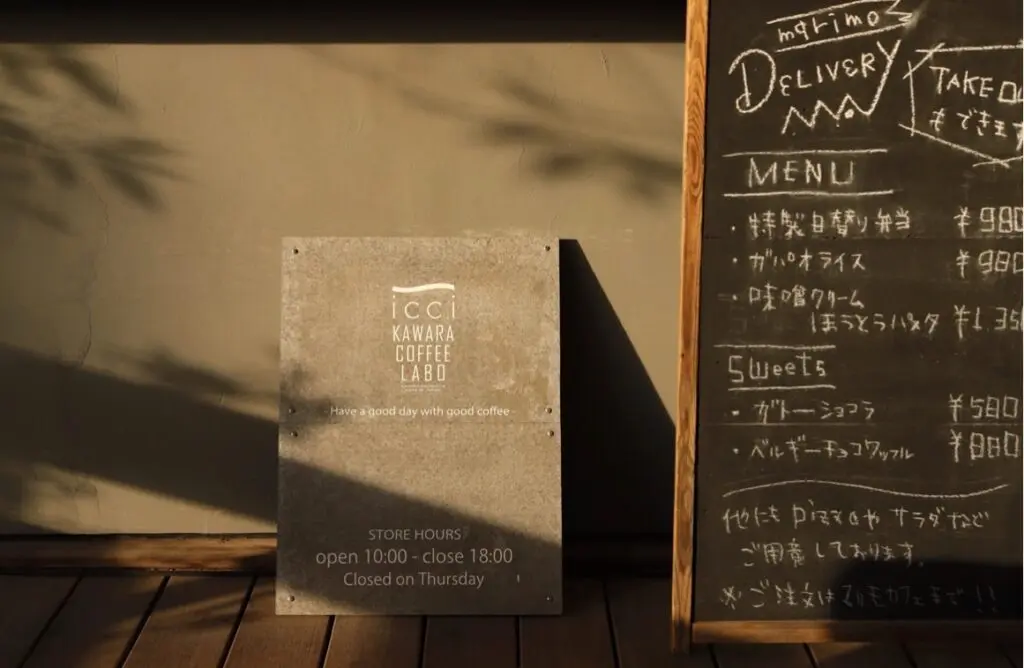 icci
KAWARA
COFFEE
LABO
- Have a good day with good coffee -
STORE HOURS
open 10:00 - close 18:00
Closed on Thursday
marimo
DELIVERY
TAKE
もできます
MENU
・特製日替り弁当 ¥980
・ガパオライス ¥980
・味噌クリーム
ほうとうパスタ ¥1.35
Sweets
・ガトーショコラ ¥580
・ベルギーチョコワッフル ¥880
他にも pizzaや サラダなど
ご用意しております。
※ご注文はまりもカフェまで!!